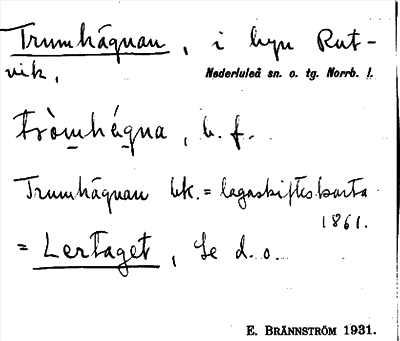 Trumhágnan, i byn Rut-
vik, Nederluleå sn. o. tg. Norrb. l.
tròmhágna, b. f.
Trumhágnan bk. = lagaskifteskarta
1861.
= Lertaget, Se d. o.
E. BRÄNNSTRÖM 1931.